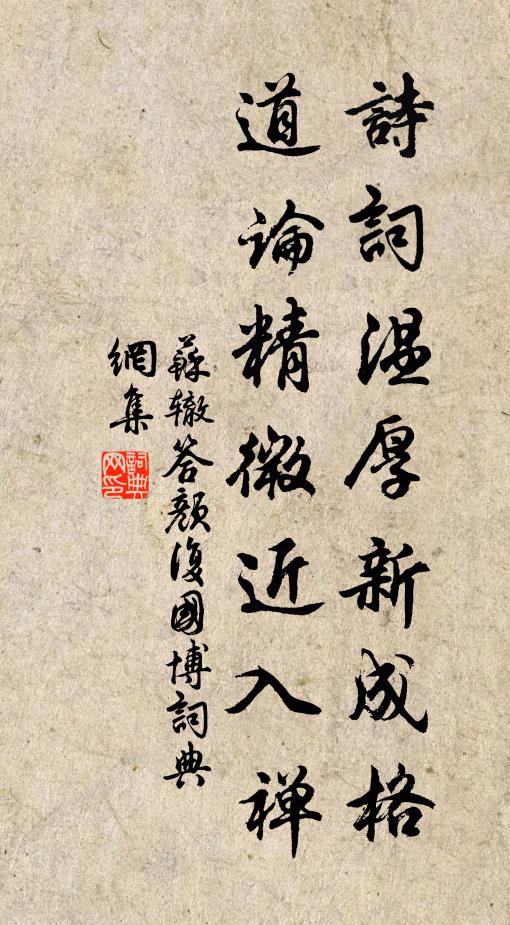 詩詞温厚新成格
道論精微近入禅
蘇辙答颜復國博詞典
網集
詞典
网印